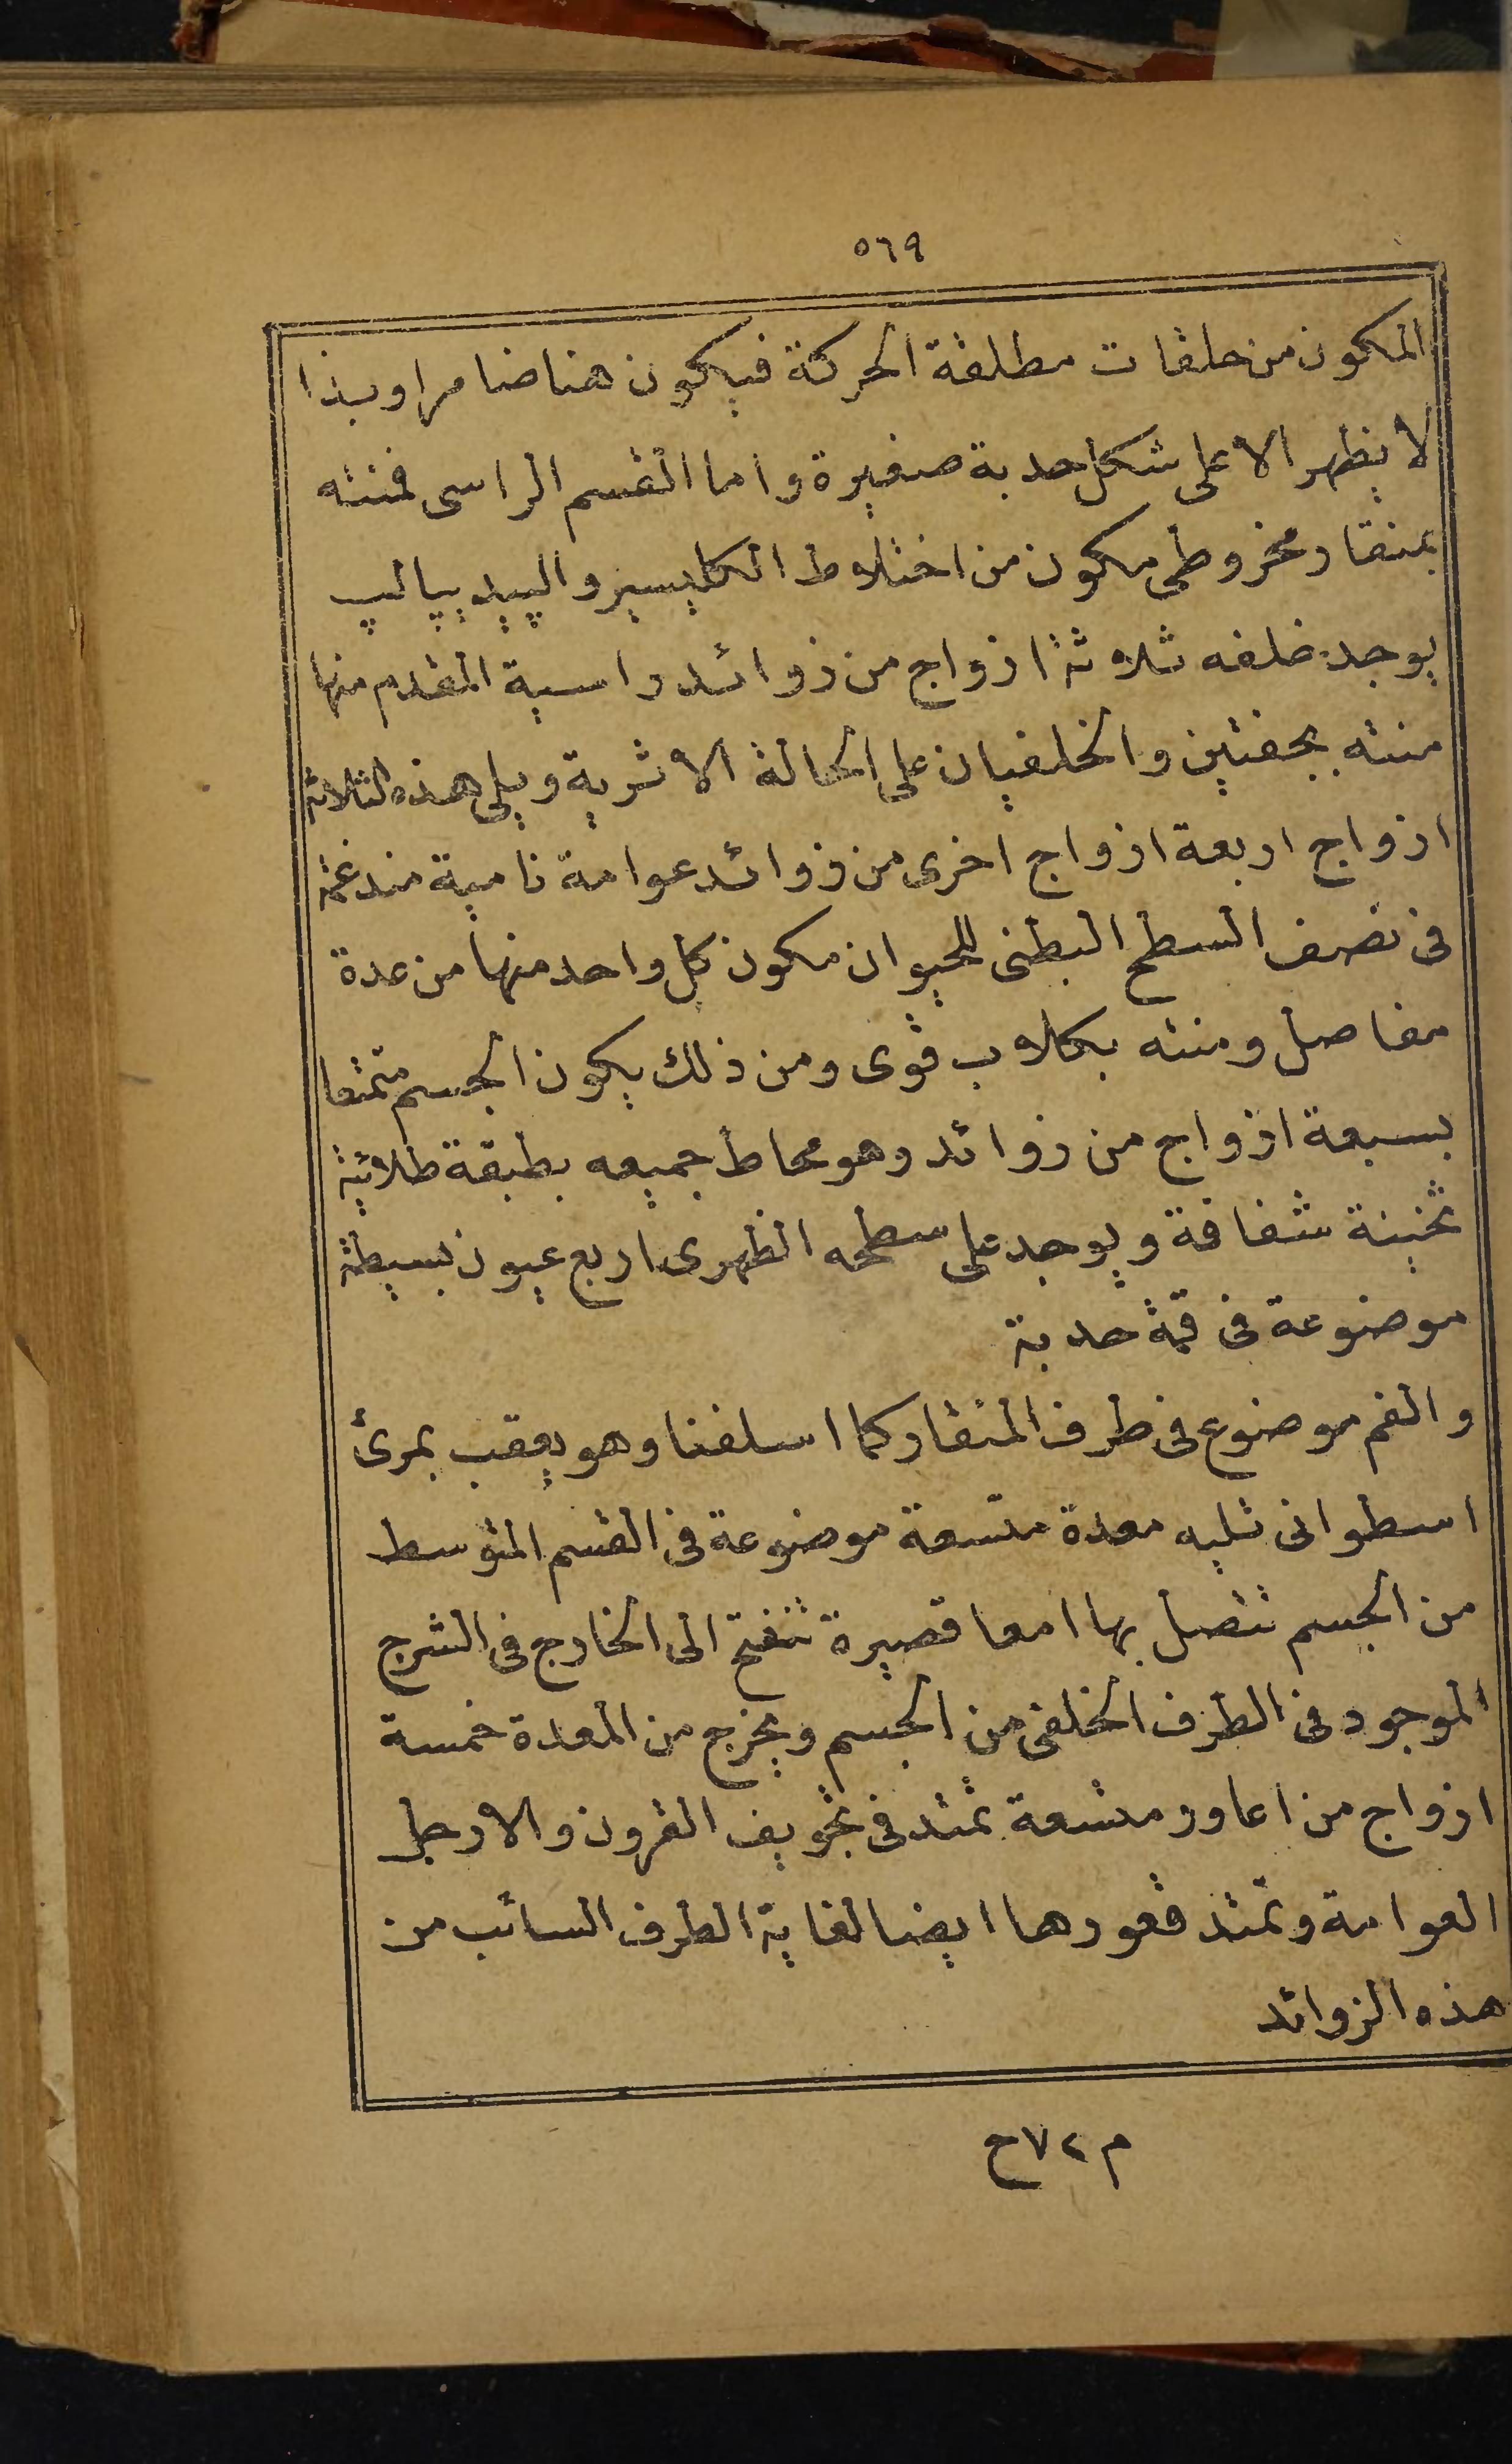 ٥٦٩
المكون من حلقات مطلقة الحركة فيكون هنا ضامرا وبذا
لا يظهر الا على شكل حدبة صغيرة واما القسم الراسى فمنته
بمنقار مخروطى مكون من اختلاط الكليسير والپيد يپالپ
يوجد خلفه ثلاثة ازواج من زوائد راسية المقدم منها
منته بجفتين والخلفيان على الحالة الاثرية ويلى هذه الثلاثة
ازواج اربعة ازواج اخرى من زوائد عوامة نامية مندغمة
فى نصف السطح البطنى للحيوان مكون كل واحد منها من عدة
مفاصل ومنته بكلاب قوى ومن ذلك يكون الجسم متمتعا
بسبعة ازواج من زوائد وهو محاط جميعه بطبقة طلائية
ثخينة شفافة ويوجد على سطحه الظهرى اربع عيون بسيطة
موضوعة فى قمة حدبة
والفم موضوع فى طرف المنقار كما اسلفنا وهو يعقب بمرئ
اسطوانى تليه معدة متسعة موضوعة فى القسم المتوسط
من الجسم تتصل بها امعا قصيرة تنفتح الى الخارج فى الشرج
الموجود فى الطرف الخلفى من الجسم ويخرج من المعدة خمسة
ازواج من اعاور متسعة تمتد فى تجويف القرون والارجل
العوامة وتمتد قعورها ايضا لغاية الطرف السائب من
هذه الزوائد
م ٧٢ ح